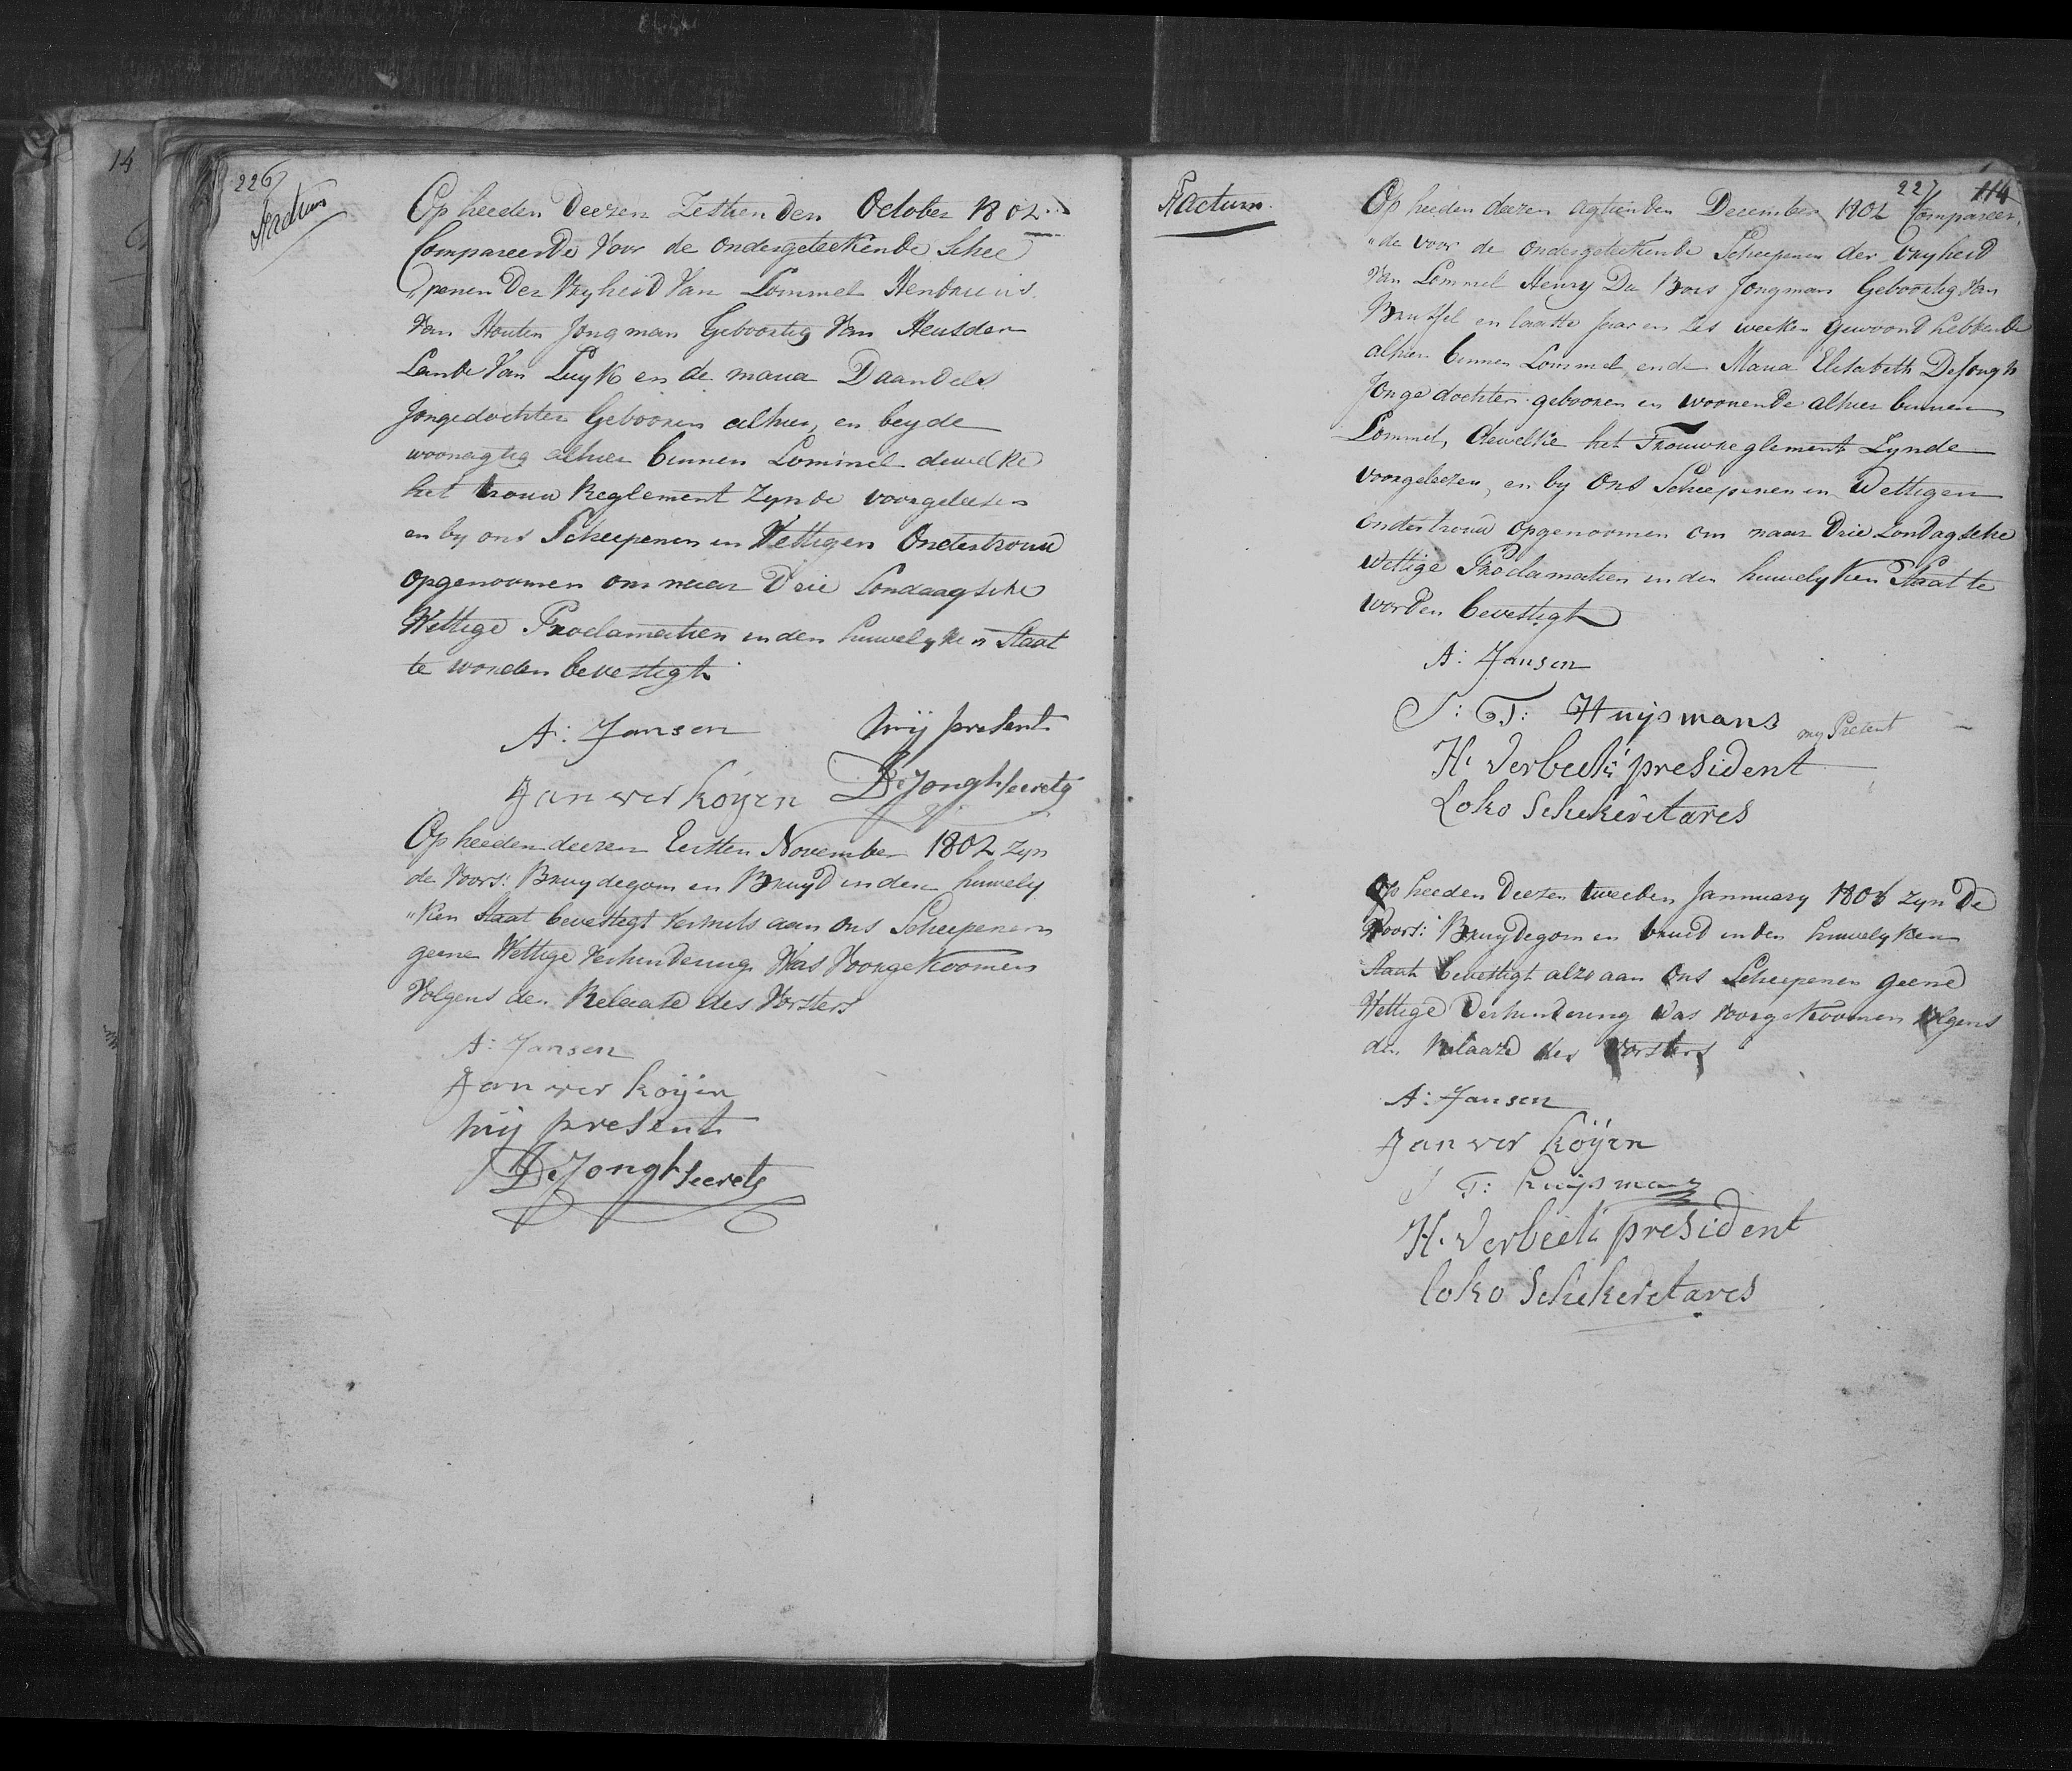 14
226
Factum
Op heeden Deezen Zesthienden October 1802
Compareerde Voor de ondergeteekende Schee
"penen Der Vryheid Van Lommel Hendricus
Van Houten Jongman Geboortig Van Heusden
Lande Van Luyk en de maria Daandels
Jongedochter Gebooren alhier, en beyde
woonagtig alhier binnen Lommel dewelke
het trouw Reglement Zynde voorgeleesen
en by ons Scheepenen in Wettigen Ondertrouw
opgenoomen om naar Drie Sondaagsche
Wettige Proclamatien in den huwelyken Staat
te worden bevestigt
A: Jansen
mij present
Jan ver koÿen
DeJongh Secrets
Op heeden deezen Eersten November 1802 zyn
de Voors: Bruydegom en Bruyd in den huwely
"ken Staat bevestigt vermits aan ons Scheepenen
geene Wettige Verhindering Was Voorgekoomen
Volgens den Relaase des Vorsters
A: Jansen
Jan ver koÿen
mij present
DeJongh Secrets
227
114
Factum.
Op heeden deezen agtienden December 1802 Compareer,
"de voor de ondergeteekende Scheepenen der vryheid
Van Lommel Henry Du Bois Jongman Geboortig Van
Brussel en laatste Jaar en zes weeken gewoond hebbende
alhier binnen Lommel, ende Maria Elisabeth DeJongh
Jonge dochter gebooren en woonende alhier binnen
Lommel, dewelke het Trouwreglement Zynde
voorgeleezen, en by Ons Scheepenen in Wettigen
ondertrouw opgenoomen om naar Drie Zondagsche
wettige Proclamatien in den huwelyken Staat te
worden bevestigt
A: Jansen
J: F: Huijsmans
my Present
H. Verbeek president
Loko Schekeretares
Op heeden Deezen tweeden Jannuary 1803 zyn De
Voors: Bruydegom en bruid in den huwelyken
Staat bevestigt alzo aan Ons Scheepenen geene
Wettige Verhindering Was voorgekoomen volgens
den Relaaze des Vorsters
A: Jansen
Jan ver köÿen
J F: huijsmans
H. Verbeek president
loko Schekeretares